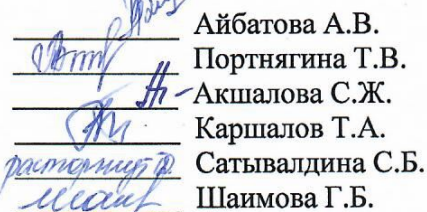 Айбатова А.В.
Портнягина Т.В.
Акшалова С.Ж.
Каршалов Т.А.
Сатывалдина С.Б.
Шаимова Г.Б.